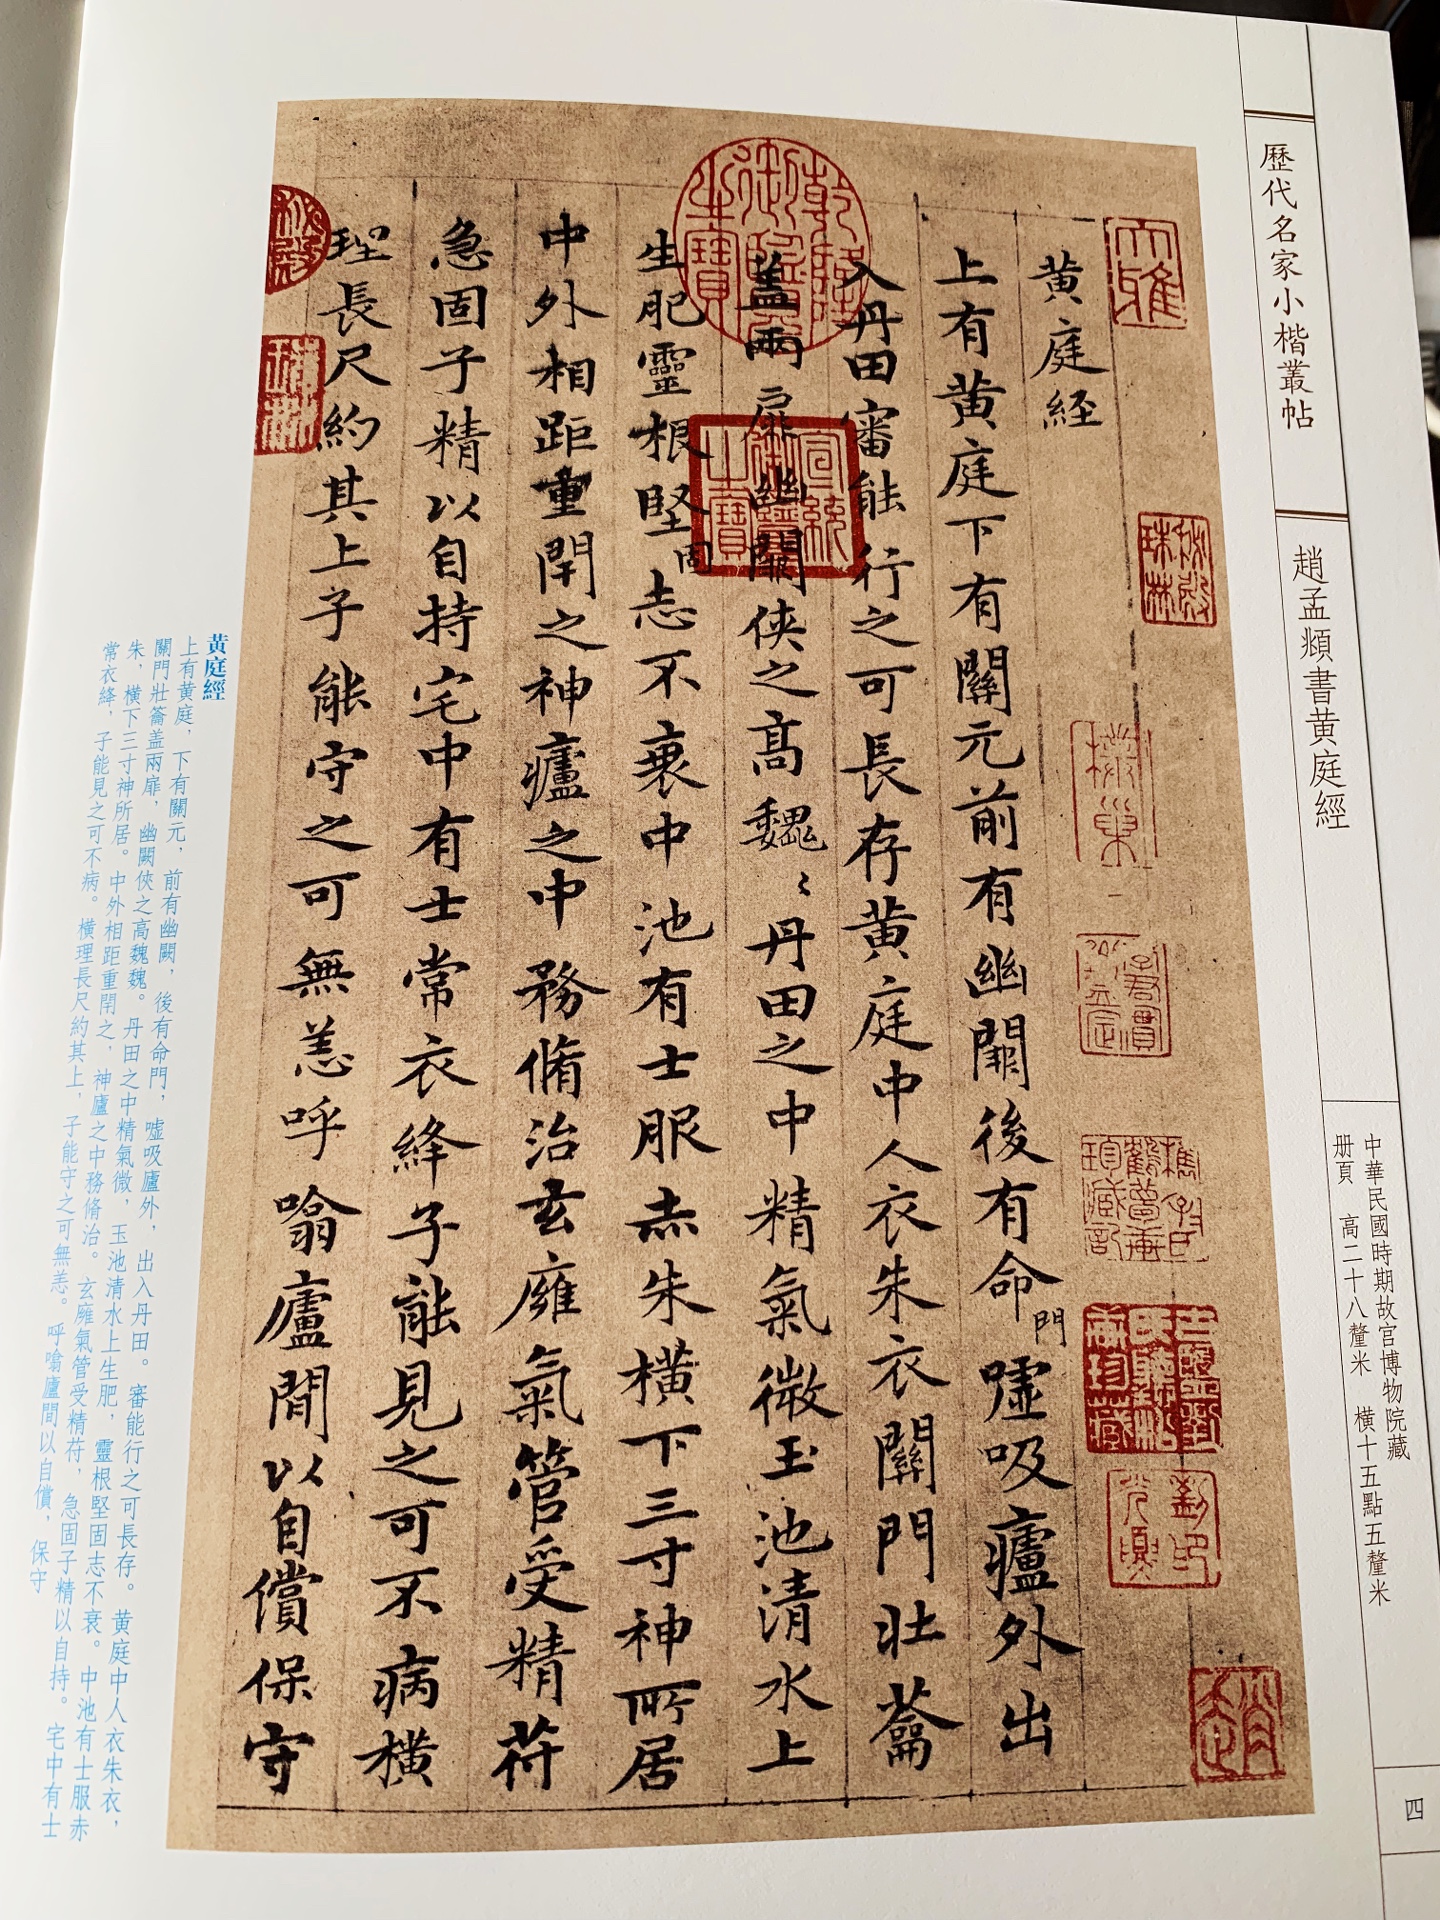 歷代名家小楷叢帖
趙孟頫書黃庭經
中華民國時期故宮博物院藏
册頁　高二十八釐米　橫十五點五釐米
四
大雅
黄庭経
上有黄庭下有關元前有幽闕後有命門嘘吸廬外出
入丹田審能行之可長存黄庭中人衣朱衣關門壯蘥
盖兩扉幽闕俠之高魏〻丹田之中精氣微玉池清水上
生肥靈根堅固志不衰中池有士服赤朱橫下三寸神所居
中外相距重閇之神廬之中務脩治玄癰氣管受精苻
急固子精以自持宅中有士常衣絳子能見之可不病橫
理長尺約其上子能守之可無恙呼噏廬間以自償保守
乾隆御覽之寶
宣統御覽之寶
黃庭經
上有黄庭，下有關元，前有幽闕，後有命門，嘘吸廬外，出入丹田。審能行之可長存。黄庭中人衣朱衣，
關門壯籥盖兩扉，幽闕俠之高魏魏。丹田之中精氣微，玉池清水上生肥，靈根堅固志不衰。中池有士服赤
朱，橫下三寸神所居。中外相距重閇之，神廬之中務脩治。玄癰氣管受精苻，急固子精以自持。宅中有士
常衣絳，子能見之可不病。橫理長尺約其上，子能守之可無恙。呼噏廬間以自償，保守